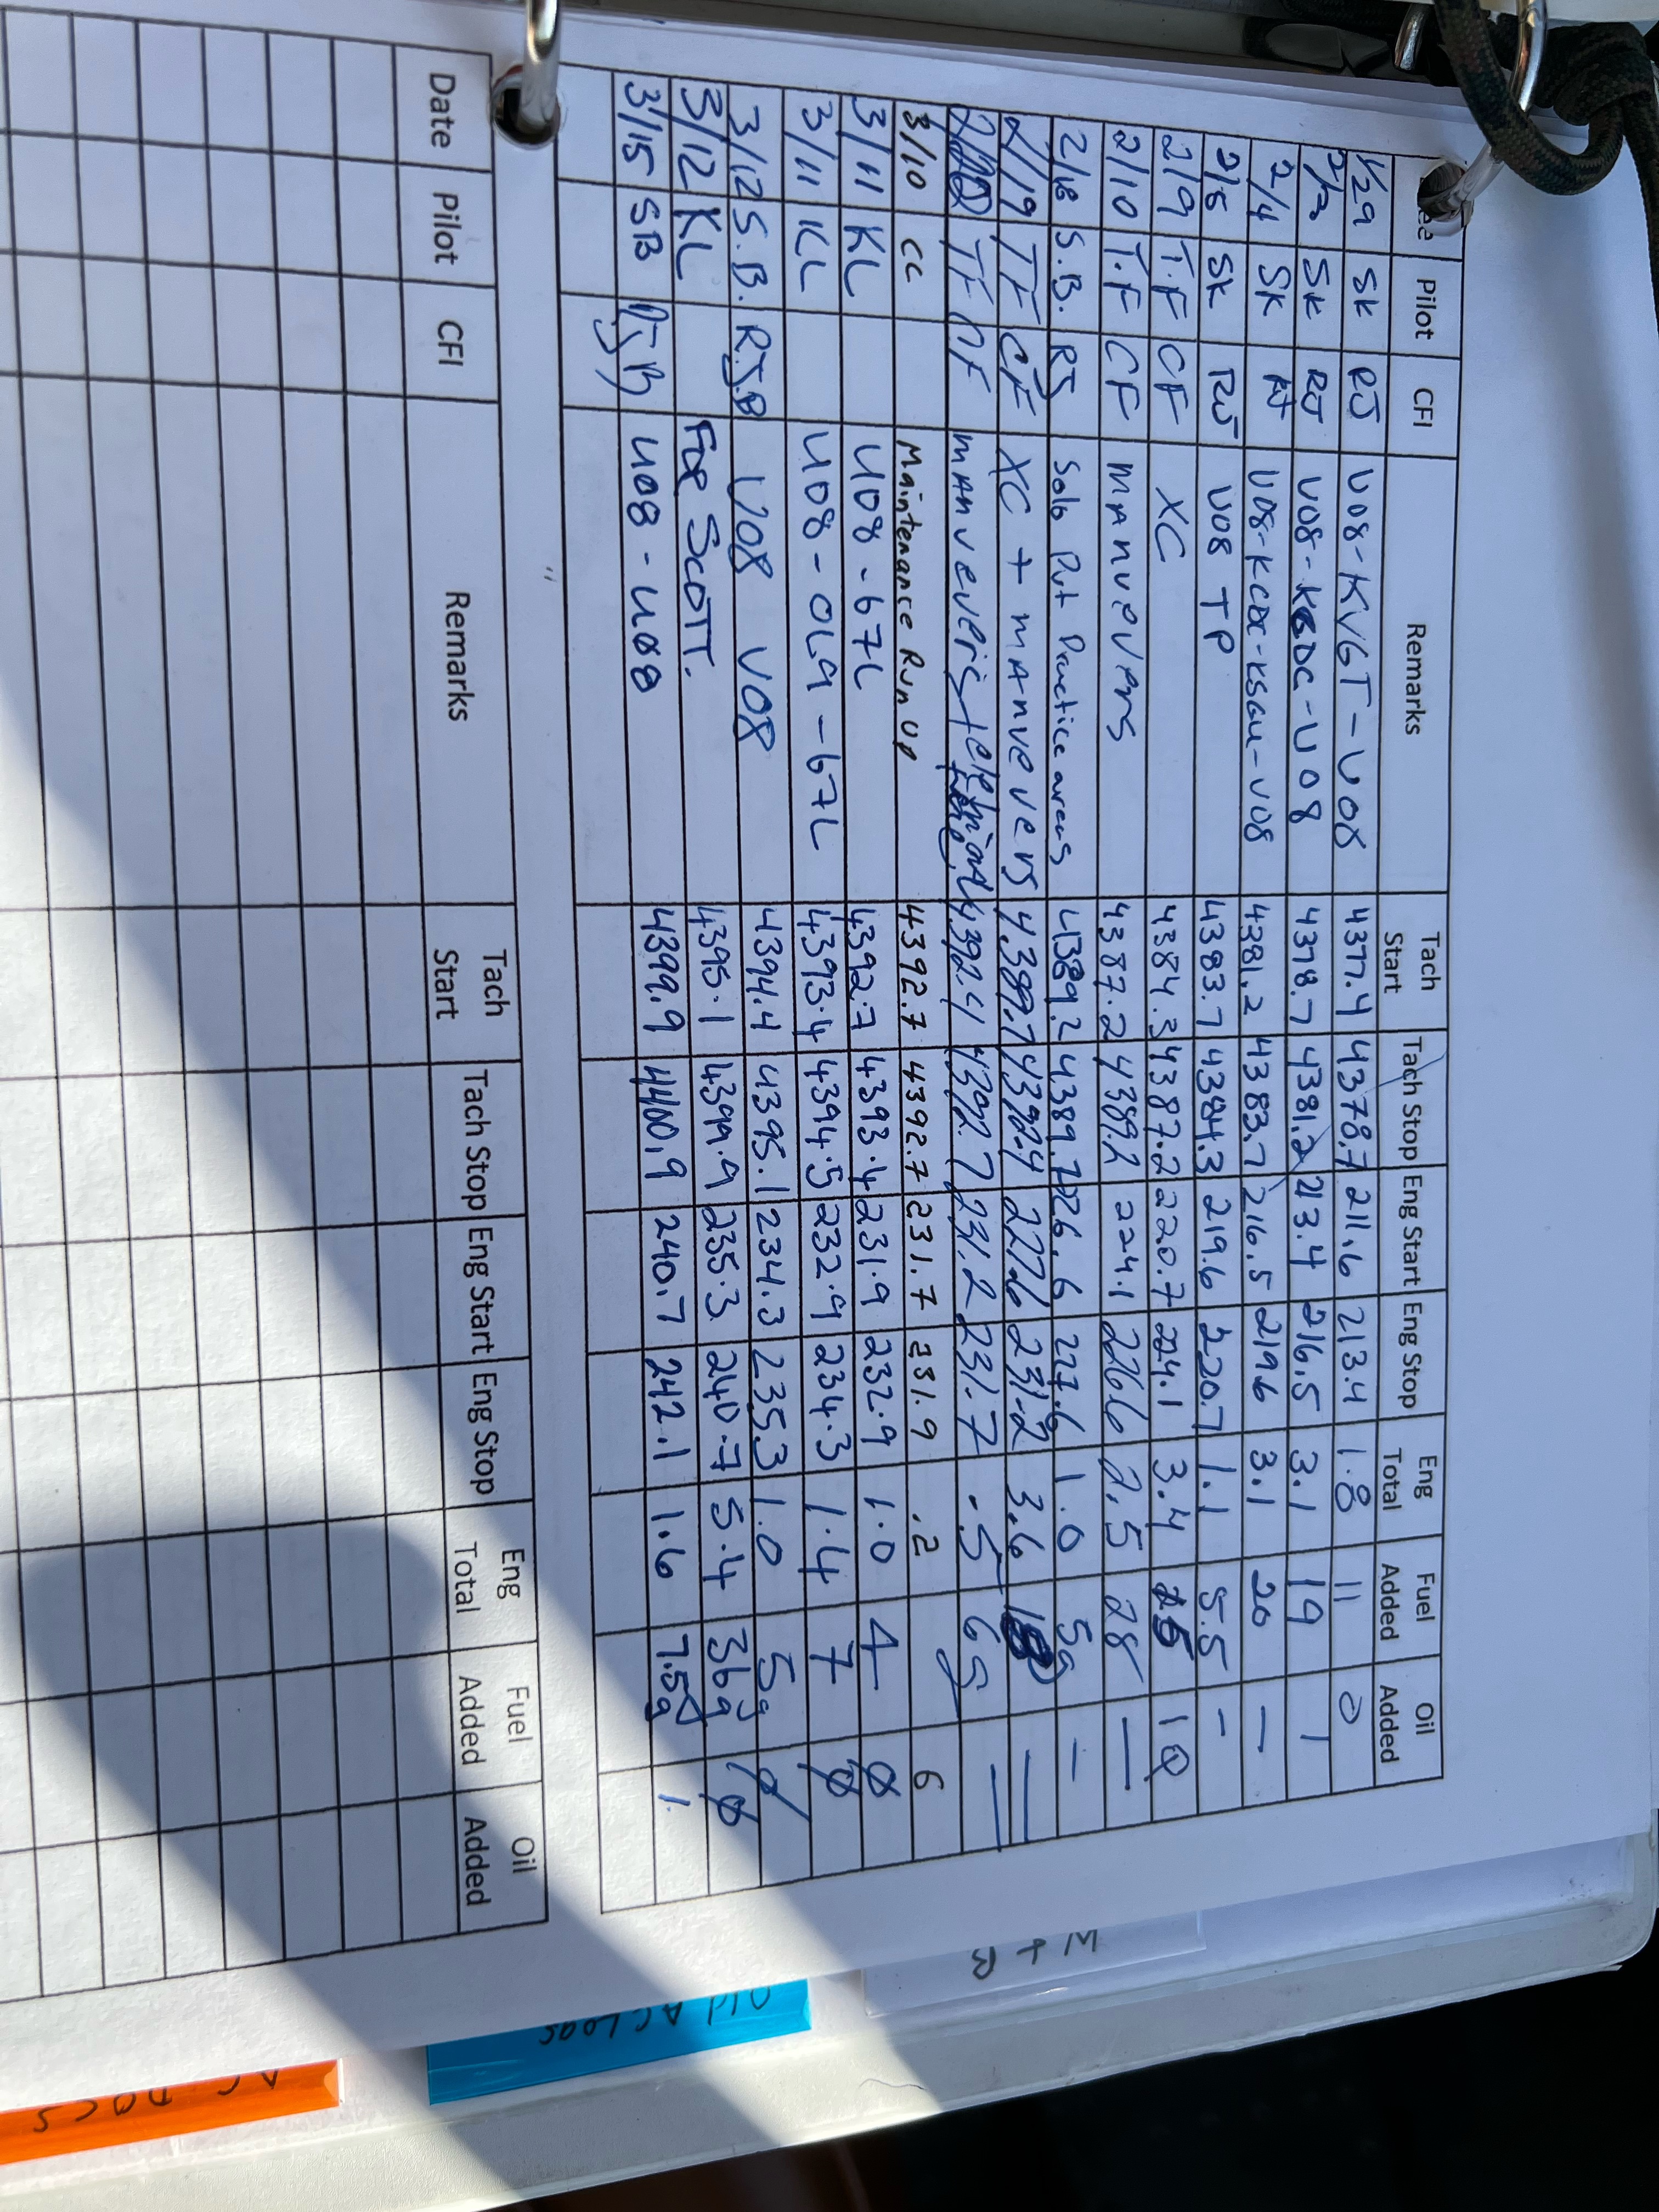 Pilot CFI Remarks Tach Start Tach Stop Eng Start Eng Stop Eng Total Fuel Added Oil Added
1/29 SK RJ U08-KVGT-U08 4377.4 4378.7 211.6 213.4 1.8 11 0
SK RJ U08-KCDC-U08 4378.7 4381.2 213.4 216.5 3.1 19
2/4 SK RJ U08-KCDC-KSGU-U08 4381.2 4383.7 216.5 219.6 3.1 20 —
SK RJ U08 TP 4383.7 4384.3 219.6 220.7 1.1 5.5 -
2/9 T.F CF XC 4384.3 4387.2 220.7 224.1 3.4 1Q
2/10 T.F CF mANUeVerS 4387.2 4389.2 224.1 226.6 2.5 28 —
S.B. RJ Solo Pvt Practice areas 4389.2 4389.7 226.6 227.6 1.0 5g -
2/19 TF CF XC + mANVeVerS 4389.7 4392.4 227.6 231.2 3.6 —
TF CF 4392.4 4392.7 231.2 231.7 .5 6g —
3/10 CC Maintenance Run Up 4392.7 4392.7 231.7 231.9 .2 6
3/11 KL U08-67L 4392.7 4393.4 231.9 232.9 1.0 4 Ø
3/11 KL U08-0L9-67L 4393.4 4394.5 232.9 234.3 1.4 7 Ø
3/12 S.B. RJB U08 U08 4394.4 4395.1 234.3 235.3 1.0 5g Ø
3/12 KL FOR SCOTT. 4395.1 4399.9 235.3 240.7 5.4 36g Ø
3/15 SB RJB U08-U08 4399.9 4400.9 240.7 242.1 1.6 7.5g 1.
Date Pilot CFI Remarks Tach Start Tach Stop Eng Start Eng Stop Eng Total Fuel Added Oil Added
W + B
Old AC Logs
AC DOCS